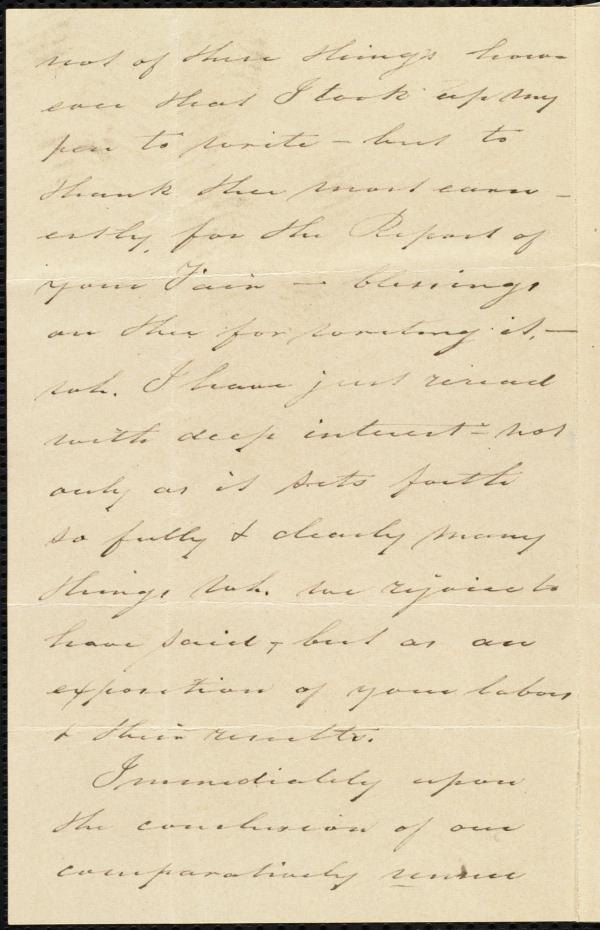 not of these things how-
ever that I took up my
pen to write - but to
thank thee most earn-
estly, for the Report of
your Fair - blessings
on thee for writing it, -
wh. I have just reread
with deep interest - not
only as it sets forth
so fully & clearly many
things wh. we rejoice to
have said, but as an
exposition of your labors
& their results.
Immediately upon
the conclusion of our
comparatively